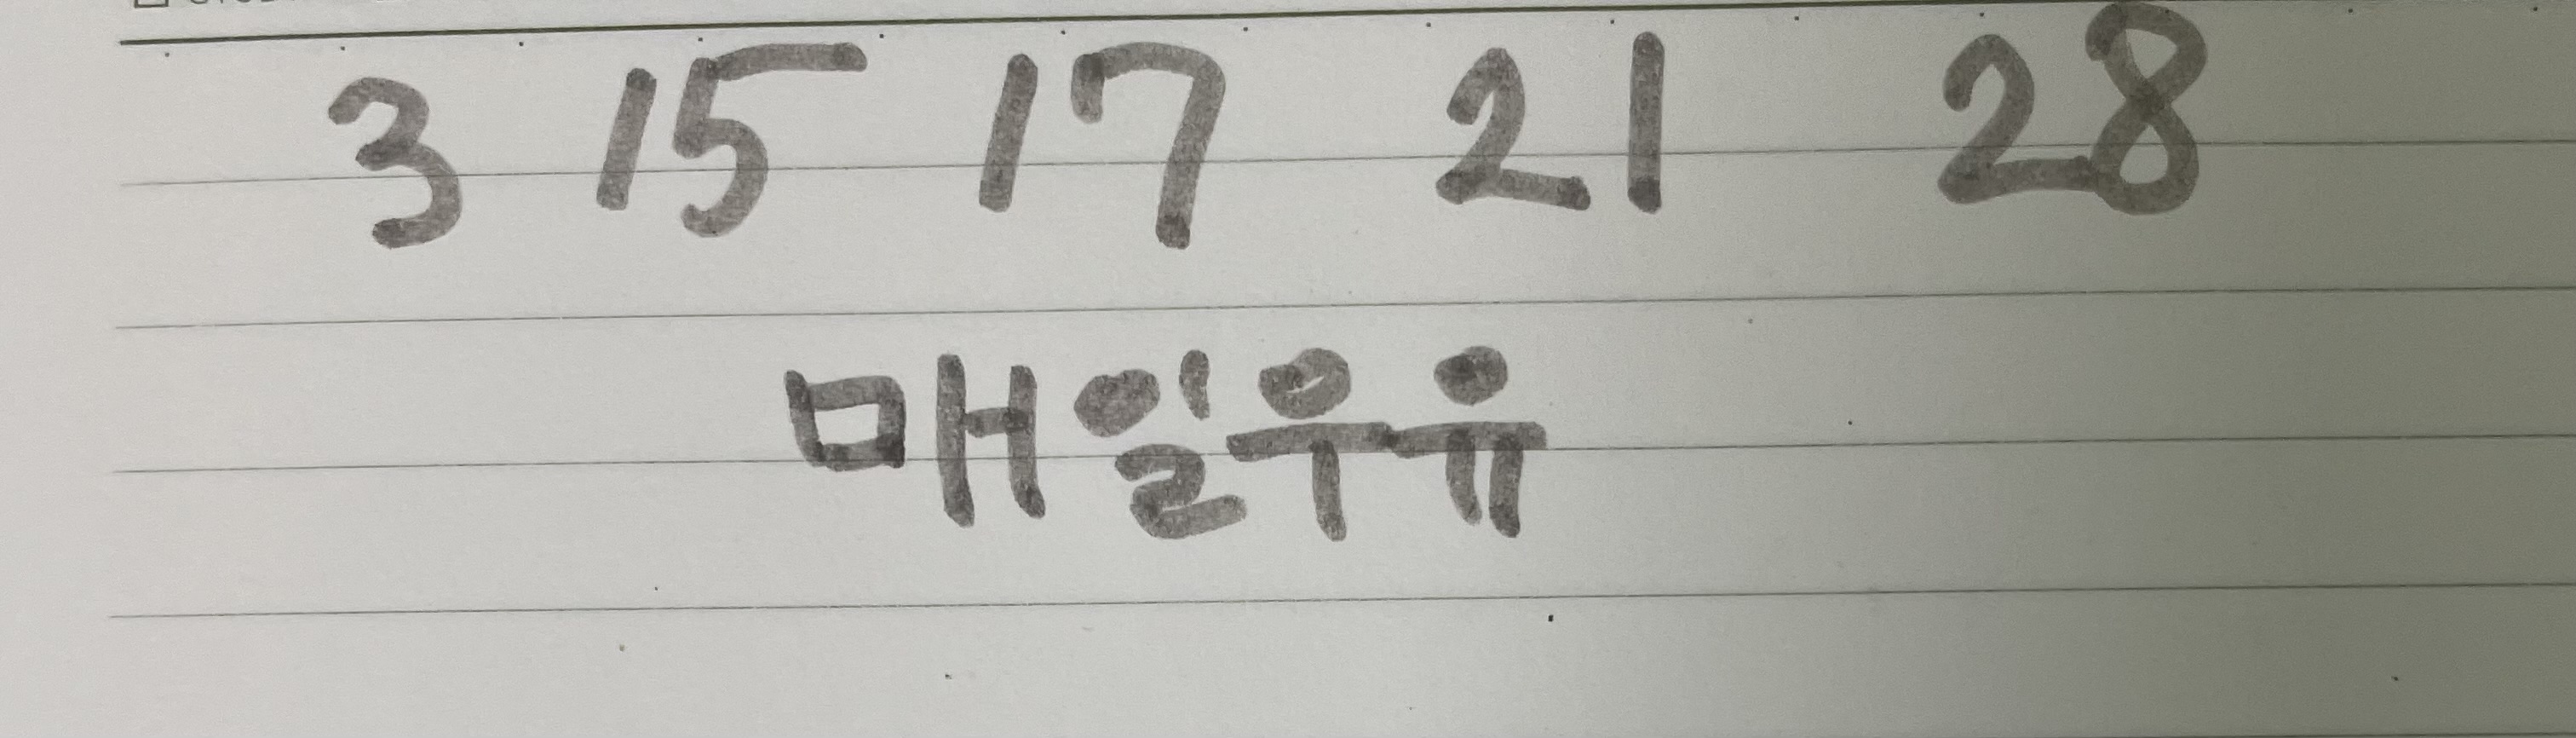 3 15 17 21 28
매일우유